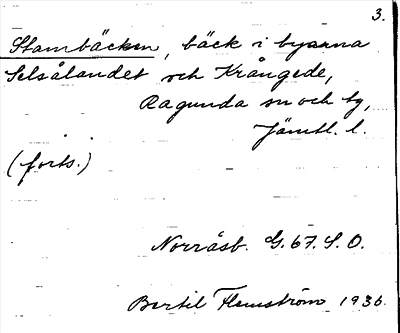 3.
Stambäcken, bäck i byarna
Selsålandet och Krångede,
Ragunda sn och tg,
Jämtl. l.
(forts.)
Norråsb. G. 67. S. O.
Bertil Flemström 1936.